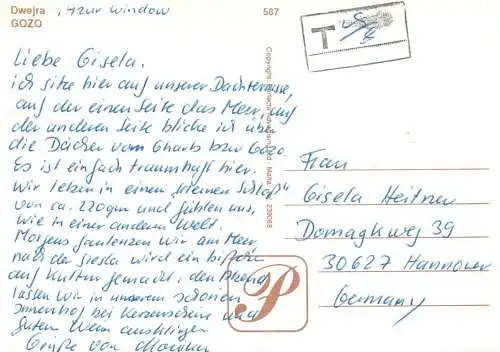 Dwejra , Azur Window
GOZO
587
T
Liebe Gisela.
ich sitze hier auf unserer Dachterrasse,
auf der einen Seite das Meer, auf
der anderen Seite blicke ich über
die Dächer vom Gharb bzw Gozo.
Es ist einfach traumhaft hier.
Wir leben in einem "kleinen Schloß"
von ca. 220qm und fühlen uns,
wie in einer anderen Welt.
Morgens faulenzen wir am Meer,
nach der Siesta wird ein bißchen
auf Kultur gemacht, den Abend
lassen wir in unserem schönen
Innenhof bei Kerzenschein und
gutem Wein ausklingen.
Grüße von
Frau
Gisela Heitner
Domagkweg 39
30627 Hannover
Germany
P